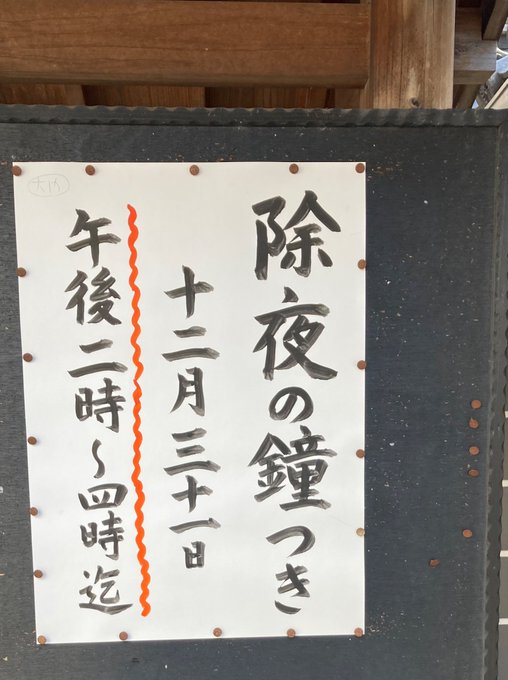 除夜の鐘つき
十二月三十一日
午後二時〜四時迄